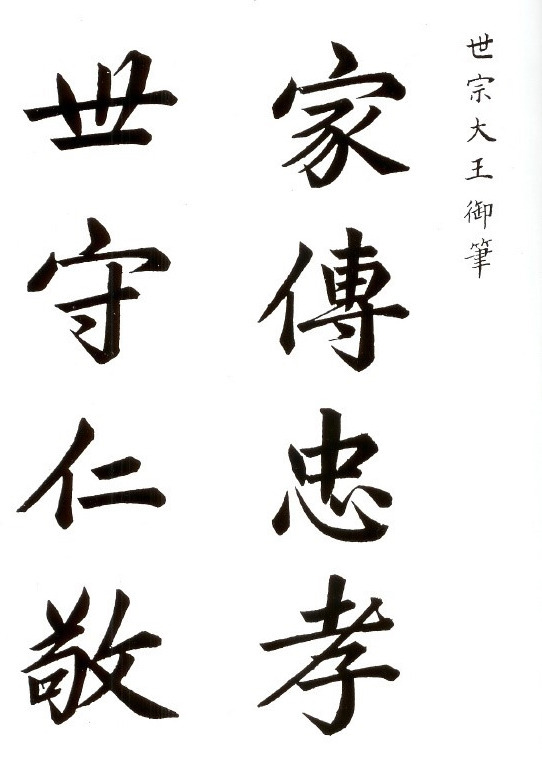 世宗大王御筆
家傳忠孝
世守仁敬